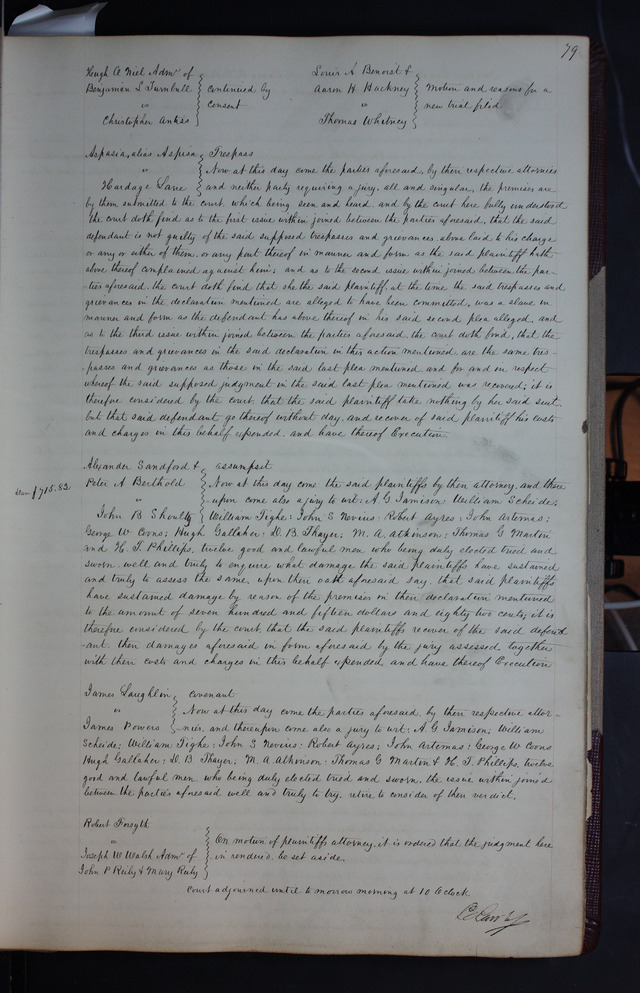 79
Hugh O Neil Admr of
Benjamin L Turnbull
vs
Christopher Ankes
continued by
consent
Louis A Benoist &
Aaron H Hackney
vs
Thomas Whitney
Motion and reasons for a
new trial filed
Aspasia, alias Aspisa
vs
Hardage Lane
Trespass
Now at this day come the parties aforesaid, by their respective attornies
and neither party requiring a jury, all and singular, the premises are
by them submitted to the court, which being seen and heard, and by the court here fully understood
the court doth find as to the first issue within joined between the parties aforesaid, that the said
defendant is not guilty of the said supposed trespasses and grievances above laid to his charge
or any or either of them, or any part thereof in manner and form as the said plaintiff hath
above thereof complained against him; and as to the second issue within joined between the par-
-ties aforesaid, the court doth find that she the said plaintiff, at the time the said trespasses and
grievances in the declaration mentioned are alleged to have been committed, was a slave in
manner and form as the defendant has above thereof in his said second plea alleged, and
as to the third issue within joined between the parties aforesaid the court doth find, that the
trespasses and grievances in the said declaration in this action mentioned are the same tres-
-passes and grievances as those in the said last plea mentioned and for and in respect
whereof the said supposed judgment in the said last plea mentioned was recovered; it is
therefore considered by the court, that the said plaintiff take nothing by her said suit
but that said defendant go thereof without day, and recover of said plaintiff his costs
and charges in this behalf expended, and have thereof Execution
Alexander Sandford &
Peter A Berthold
vs
John B Shoults
$715.82
assumpsit
Now at this day come the said plaintiffs by their attorney, and there
upon come also a jury to wit: A G Jamison; William Scheide;
William Tighe; John S Nevius; Robert Ayres; John Artemas;
George W Coons; Hugh Gallaher; D. B Thayer; M. A. Atkinson; Thomas G Martin
and H. T. Phillips, twelve good and lawful men who being duly elected tried and
sworn well and truly to enquire what damage the said plaintiffs have sustained
and truly to assess the same, upon their oath aforesaid say, that said plaintiffs
have sustained damage by reason of the premises in their declaration mentioned
to the amount of seven hundred and fifteen dollars and eighty two cents; it is
therefore considered by the court, that the said plaintiffs recover of the said defend
-ant their damages aforesaid in form aforesaid by the jury assessed together
with their costs and charges in this behalf expended, and have thereof Execution
James Laughlin
vs
James Powers
covenant
Now at this day come the parties aforesaid, by their respective attor-
-nies, and thereupon come also a jury to wit: A G Jamison; William
Scheide; William Tighe; John S Nevius; Robert Ayres; John Artemas; George W Coons
Hugh Gallaher; D. B Thayer; M. A. Atkinson; Thomas G Martin & H. T. Phillips, twelve
good and lawful men who being duly elected tried and sworn, the issue within joined
between the parties aforesaid well and truly to try, retire to consider of their verdict.
Robert Forsyth
vs
Joseph W Walsh Admr of
John P Reily & Mary Reily
On motion of plaintiffs attorney, it is ordered that the judgment here
in rendered be set aside.
Court adjourned until to morrow morning at 10 O'clock